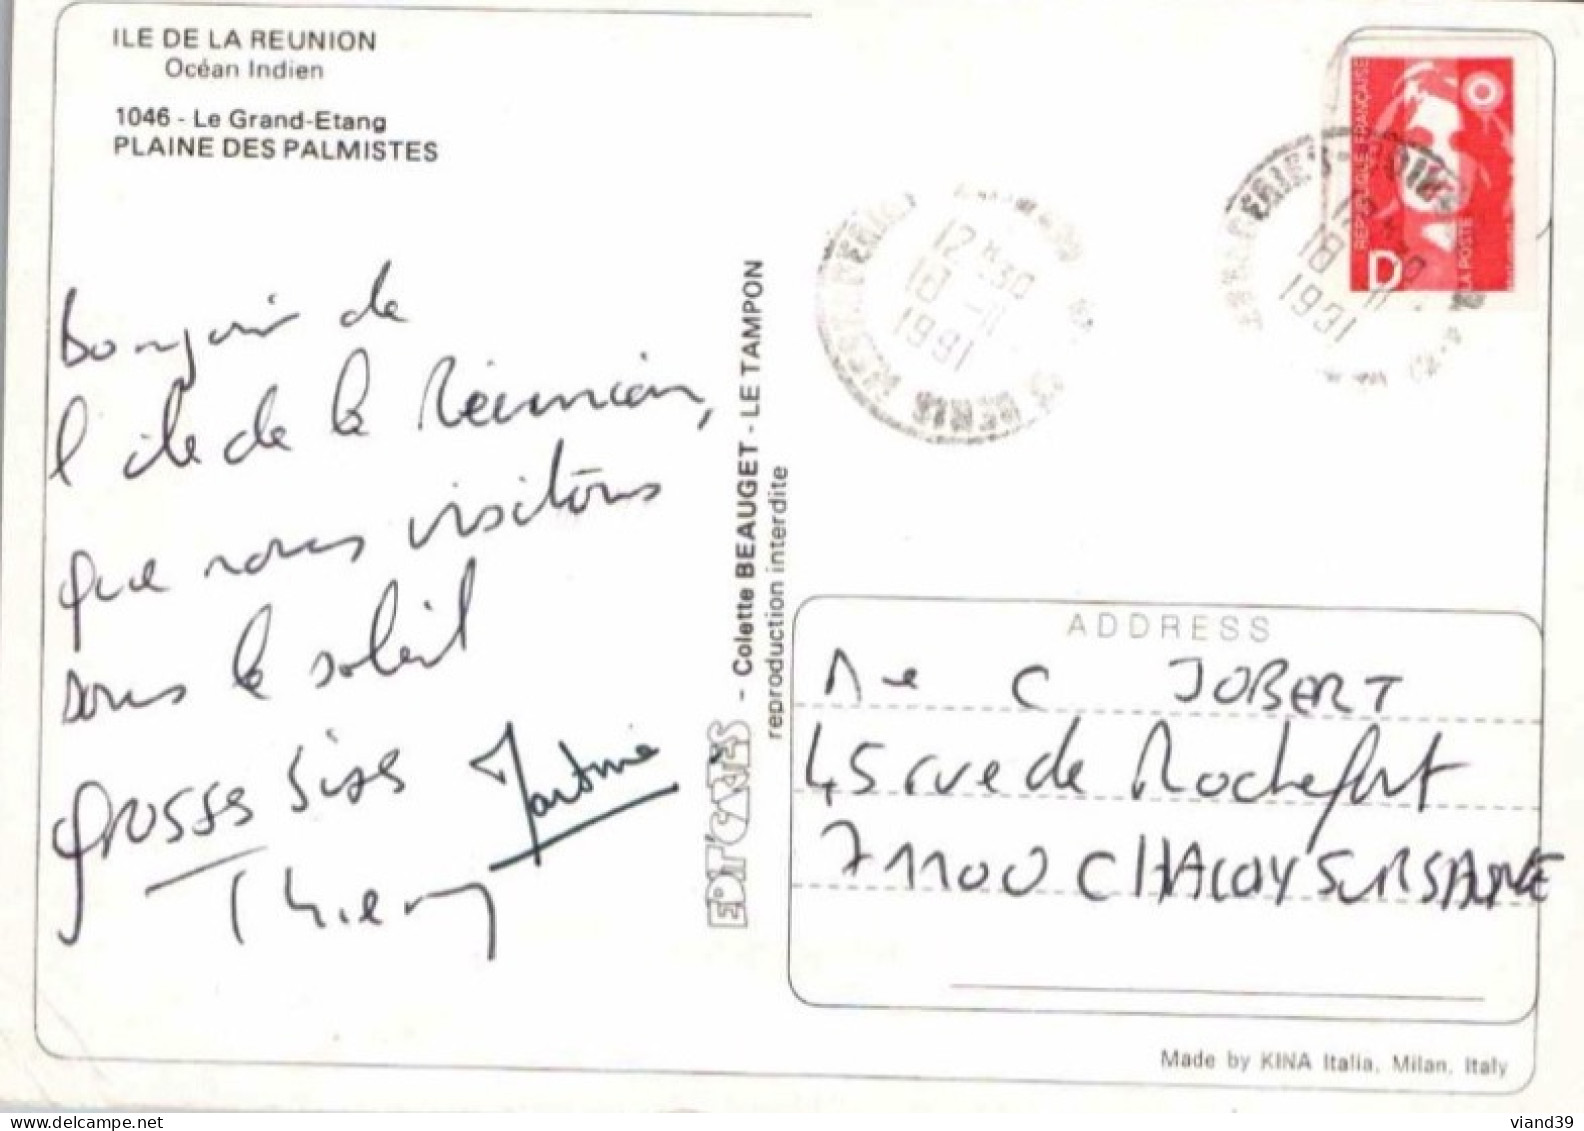 ILE DE LA REUNION
Océan Indien
1046 - Le Grand-Etang
PLAINE DES PALMISTES
Bonjour de
l'ile de la Réunion,
que nous visitons
sous le soleil
grosses bises Martine
Thierry
EDIT'CARTES - Colette BEAUGET - LE TAMPON
reproduction interdite
REPUBLIQUE FRANÇAISE
D
LA POSTE
12 H 30
18 - 11
1991
12 H 30
18 - 11
1991
ADDRESS
Me C JOBERT
45 rue de Rochefort
71100 CHALON SUR SAONE
Made by KINA Italia, Milan, Italy
viand39